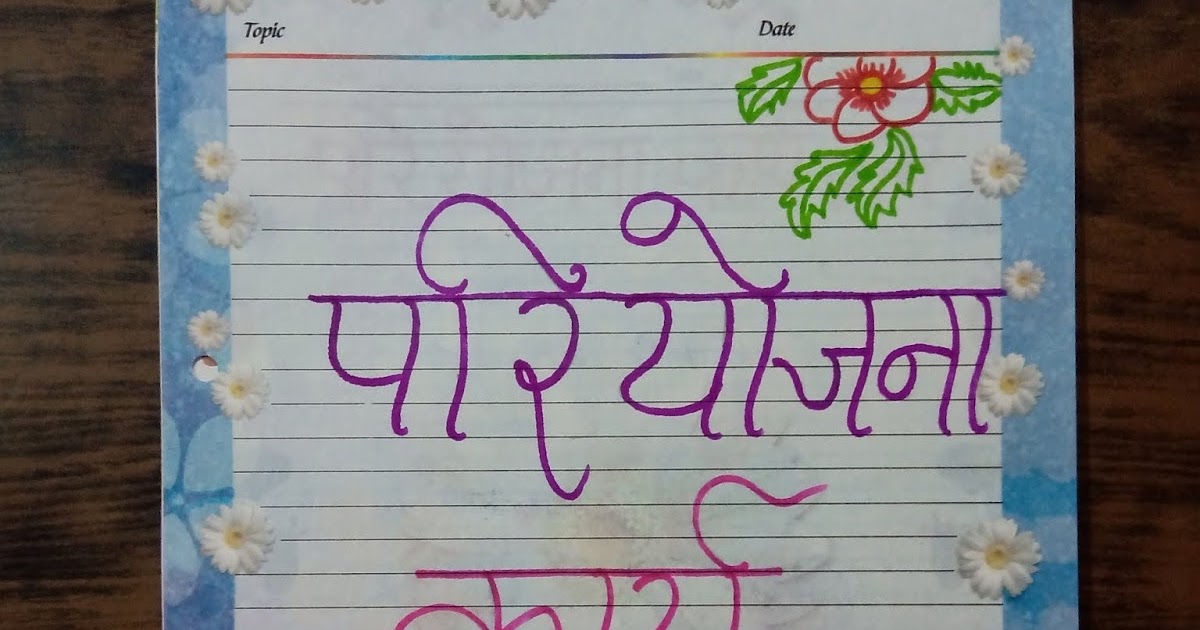 Topic Date
परियोजना
कार्य